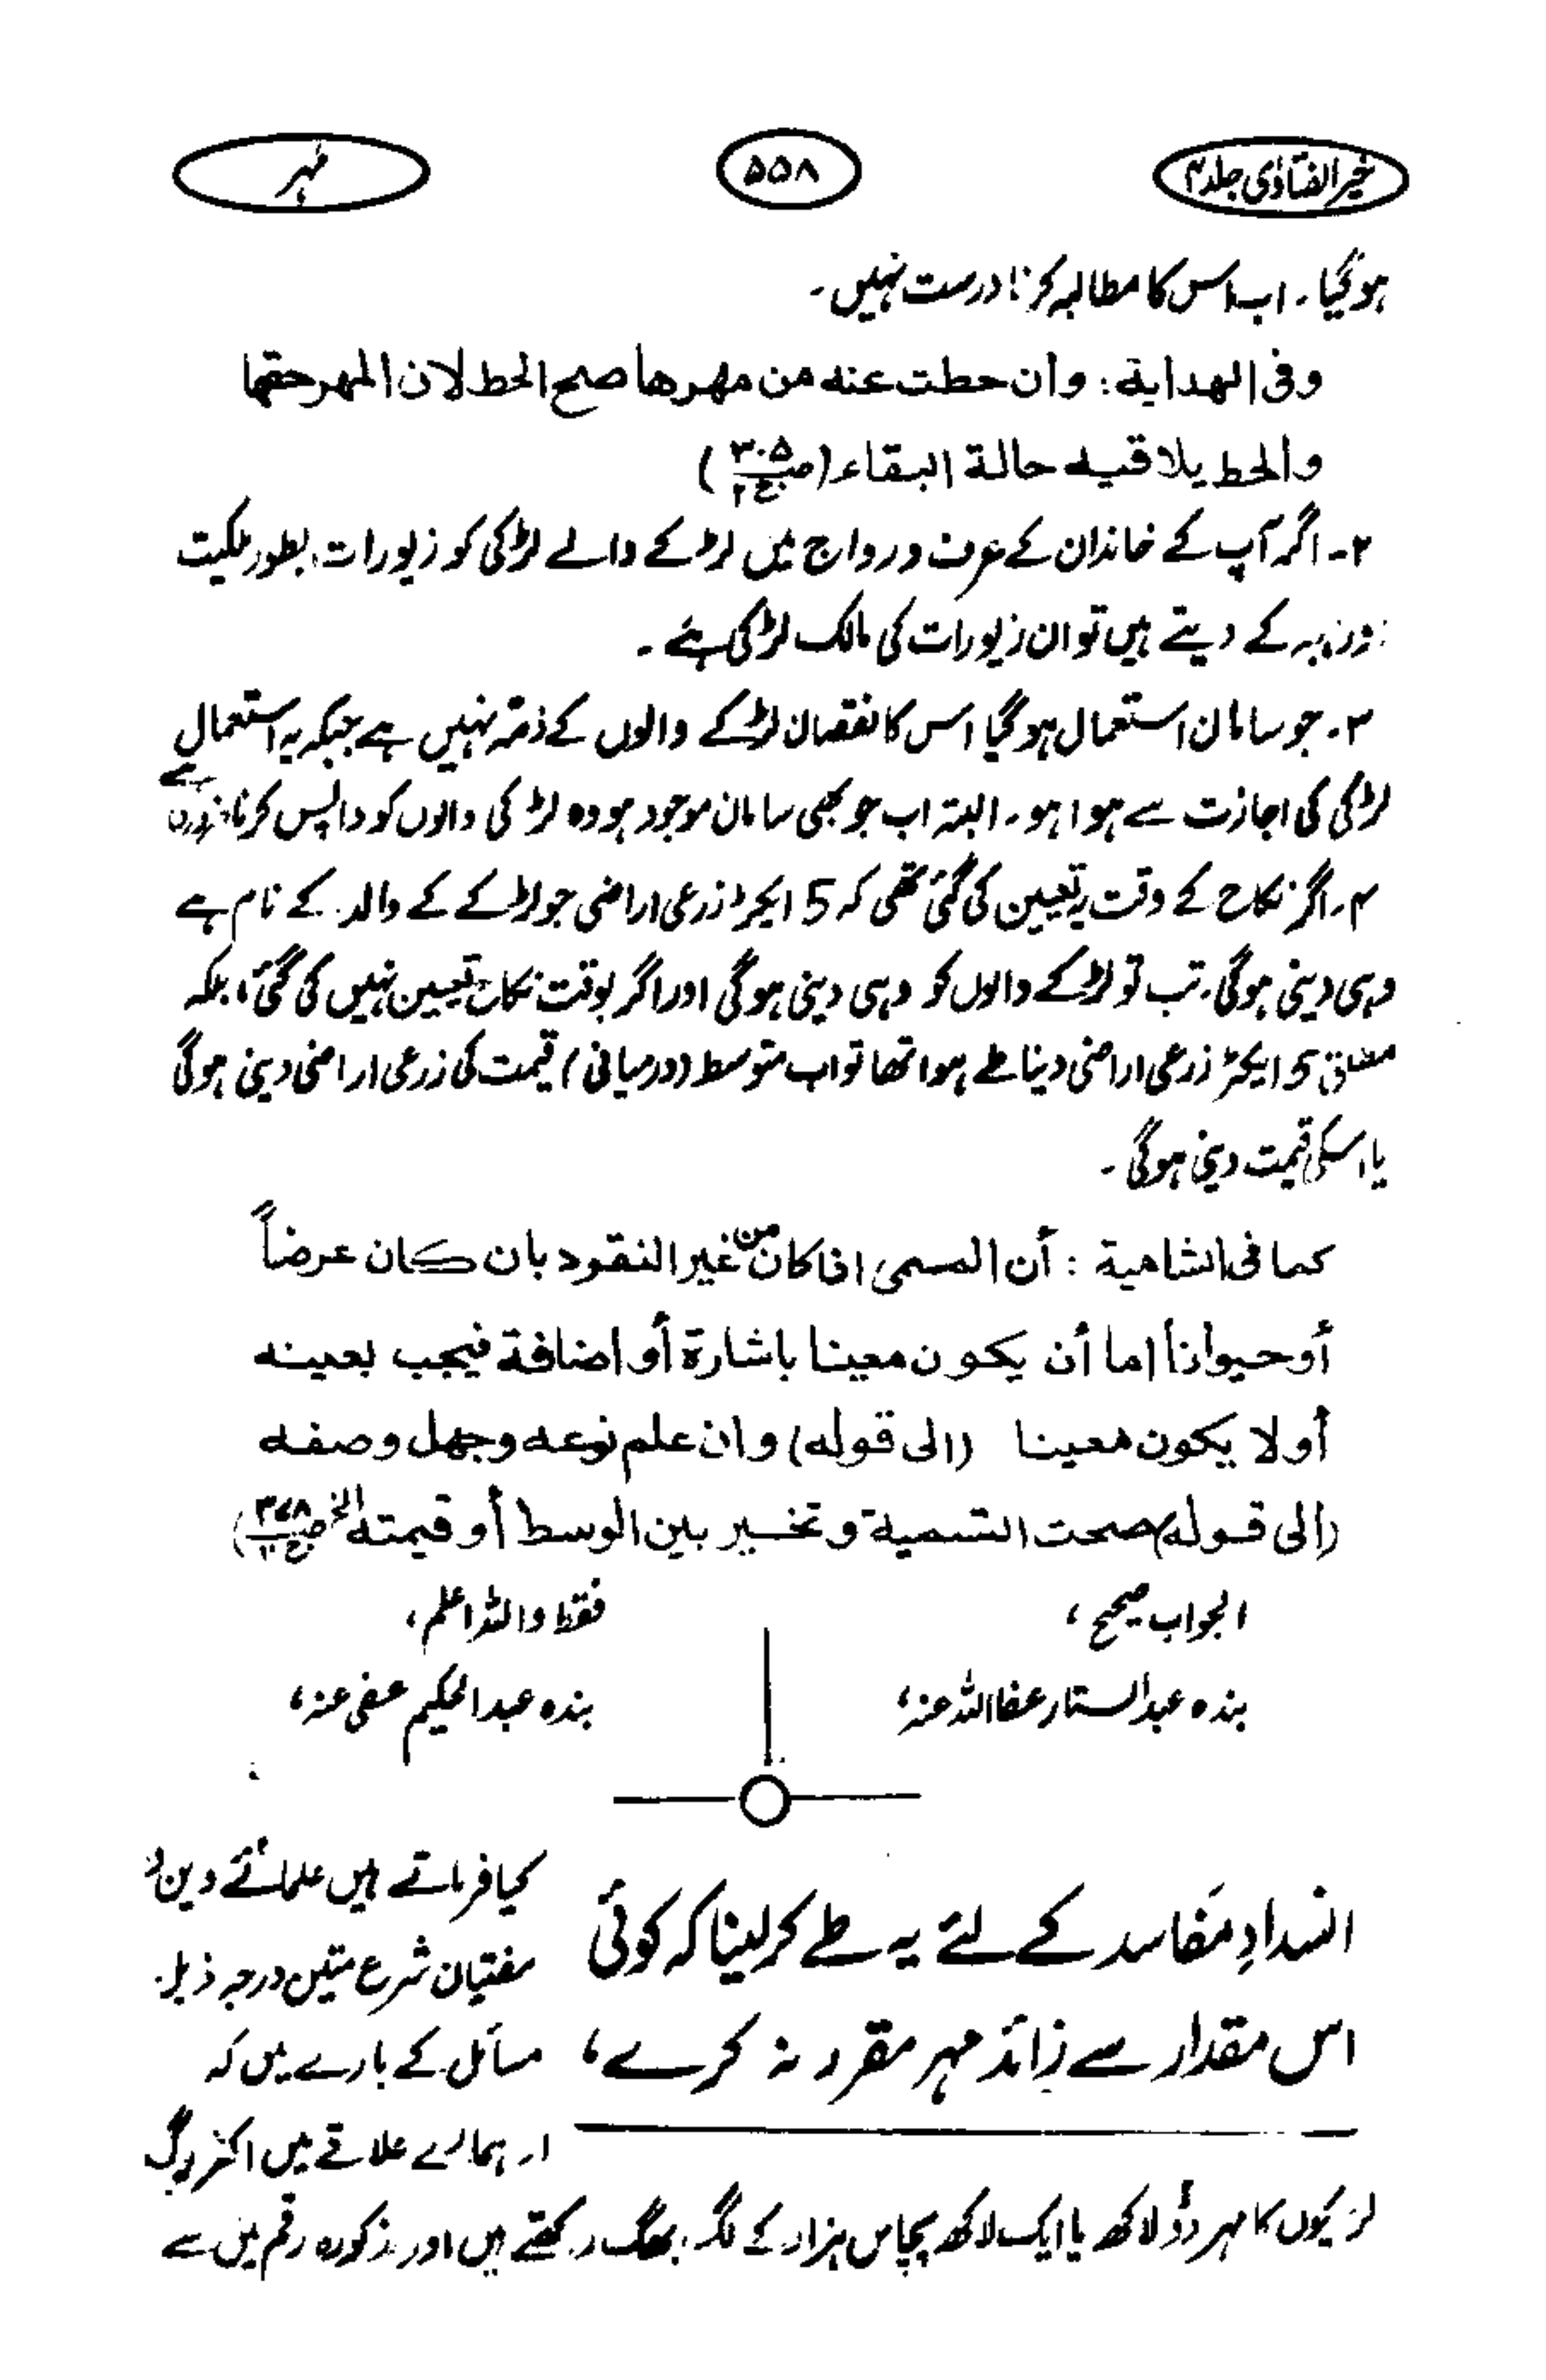 خیر الفتاوٰی جلد ۴
۵۵۸
مہر
ہوگیا۔ اب اس کا مطالبہ کرنا درست نہیں۔
وفی الهدایة: وان حطت عنه من مهرها صح الحط لان المهر حقها
والحط یلاقیه حالة البقاء (ص۳۰۵ ج۲)
۲۔ اگر آپ کے خاندان کے عرف و رواج میں لڑکے والے لڑکی کو زیورات بطور ملکیت
کے دیتے ہیں تو ان زیورات کی مالک لڑکی ہے۔
۳۔ جو سامان استعمال ہوگیا اس کا نقصان لڑکے والوں کے ذمہ نہیں ہے جبکہ یہ استعمال
لڑکی کی اجازت سے ہوا ہو۔ البتہ اب جو بھی سامان موجود ہو وہ لڑکی والوں کو واپس کرنا ضروری ہے
۴۔ اگر نکاح کے وقت یہ تعیین کی گئی تھی کہ 5 ایکڑ زرعی اراضی جو لڑکے کے والد کے نام ہے
وہی دینی ہوگی۔ تب تو لڑکے والوں کو وہی دینی ہوگی اور اگر بوقت نکاح تعیین نہیں کی گئی، بلکہ
مطلق 5 ایکڑ زرعی اراضی دینا طے ہوا تھا تو اب متوسط (درمیانی) قیمت کی زرعی اراضی دینی ہوگی
یا اسکی قیمت دینی ہوگی۔
كما فی الشامیة : أن المسمى اذا كان من غير النقود بان كان عرضاً
أو حيوانا اما أن يكون معينا باشارة أو اضافة فيجب بعينه
أو لا يكون معينا (الى قوله) وان علم نوعه وجهل وصفه
(الى قوله) صحت التسمية وتخير بين الوسط أو قيمته الخ (ص۳۷۸ ج۲)
الجواب صحیح،
فقط واللہ اعلم،
بندہ عبدالستار عفا اللہ عنہ،
بندہ عبدالحکیم عفی عنہ،
انسدادِ مَفاسد کے لئے یہ طے کر لینا کہ کوئی
اس مقدار سے زائد مہر مقرر نہ کرے،
کیا فرماتے ہیں علمائے دین و
مفتیان شرع متین درجہ ذیل
مسائل کے بارے میں کہ
۱۔ ہمارے علاقے میں اکثر لوگ
لڑکیوں کا مہر دو لاکھ یا ایک لاکھ پچاس ہزار کے لگ بھگ رکھتے ہیں اور مذکورہ رقم میں سے